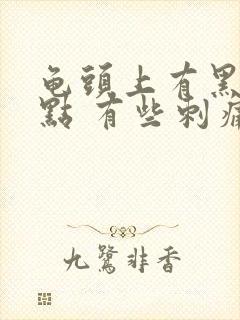 龟頭上有黑
點 有些刺痛
九鷺非香